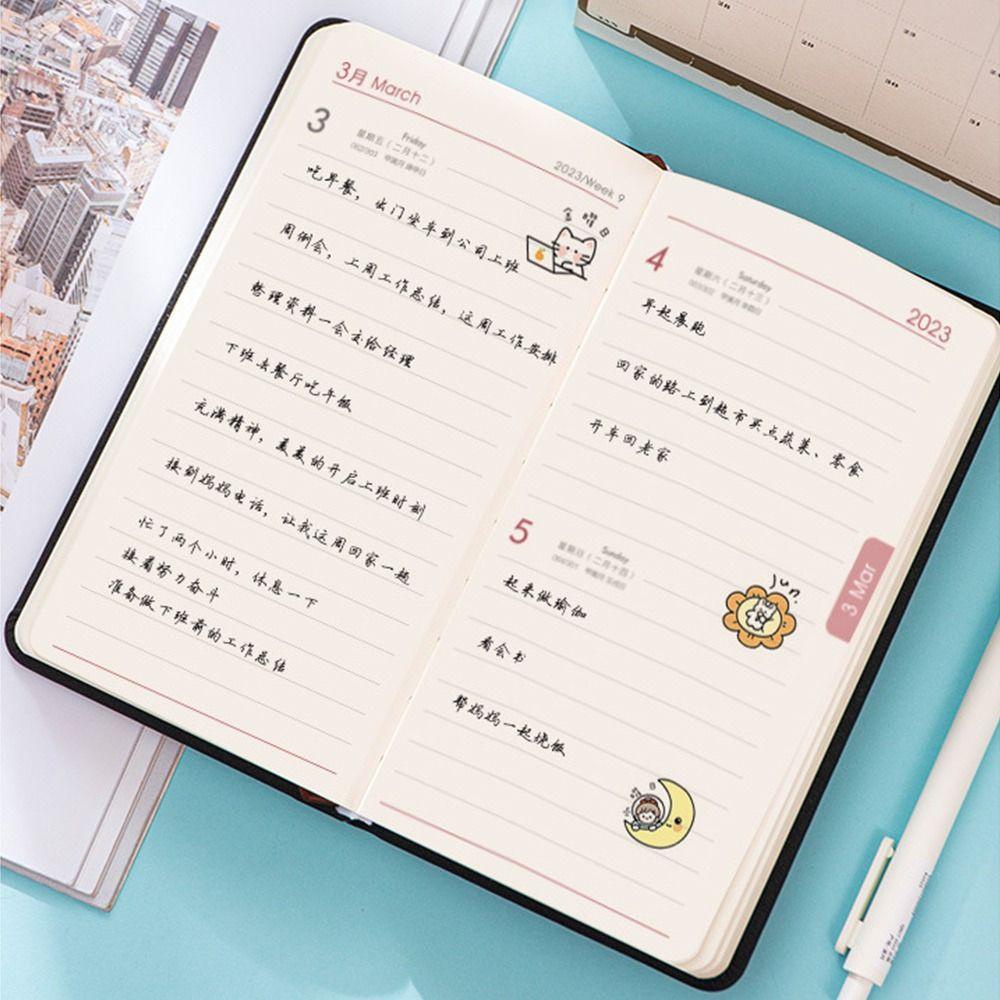 3月 March
3
Friday
星期五(二月十二)
2023/Week 9
吃早餐，出门坐车到公司上班
金曜日
周例会，上周工作总结，这周工作安排
整理资料一会去给经理
下班去餐厅吃午饭
充满精神，美美的开启上班时刻
接到妈妈电话，让我这周回家一趟
忙了两个小时，休息一下
接着努力奋斗
准备做下班前的工作总结
2023
4
Saturday
星期六(二月十三)
早起晨跑
回家的路上到超市买点蔬菜、零食
开车回老家
5
Sunday
星期日(二月十四)
起来做瑜伽
jun.
看会书
帮妈妈一起烧饭
曜日
3 Mar